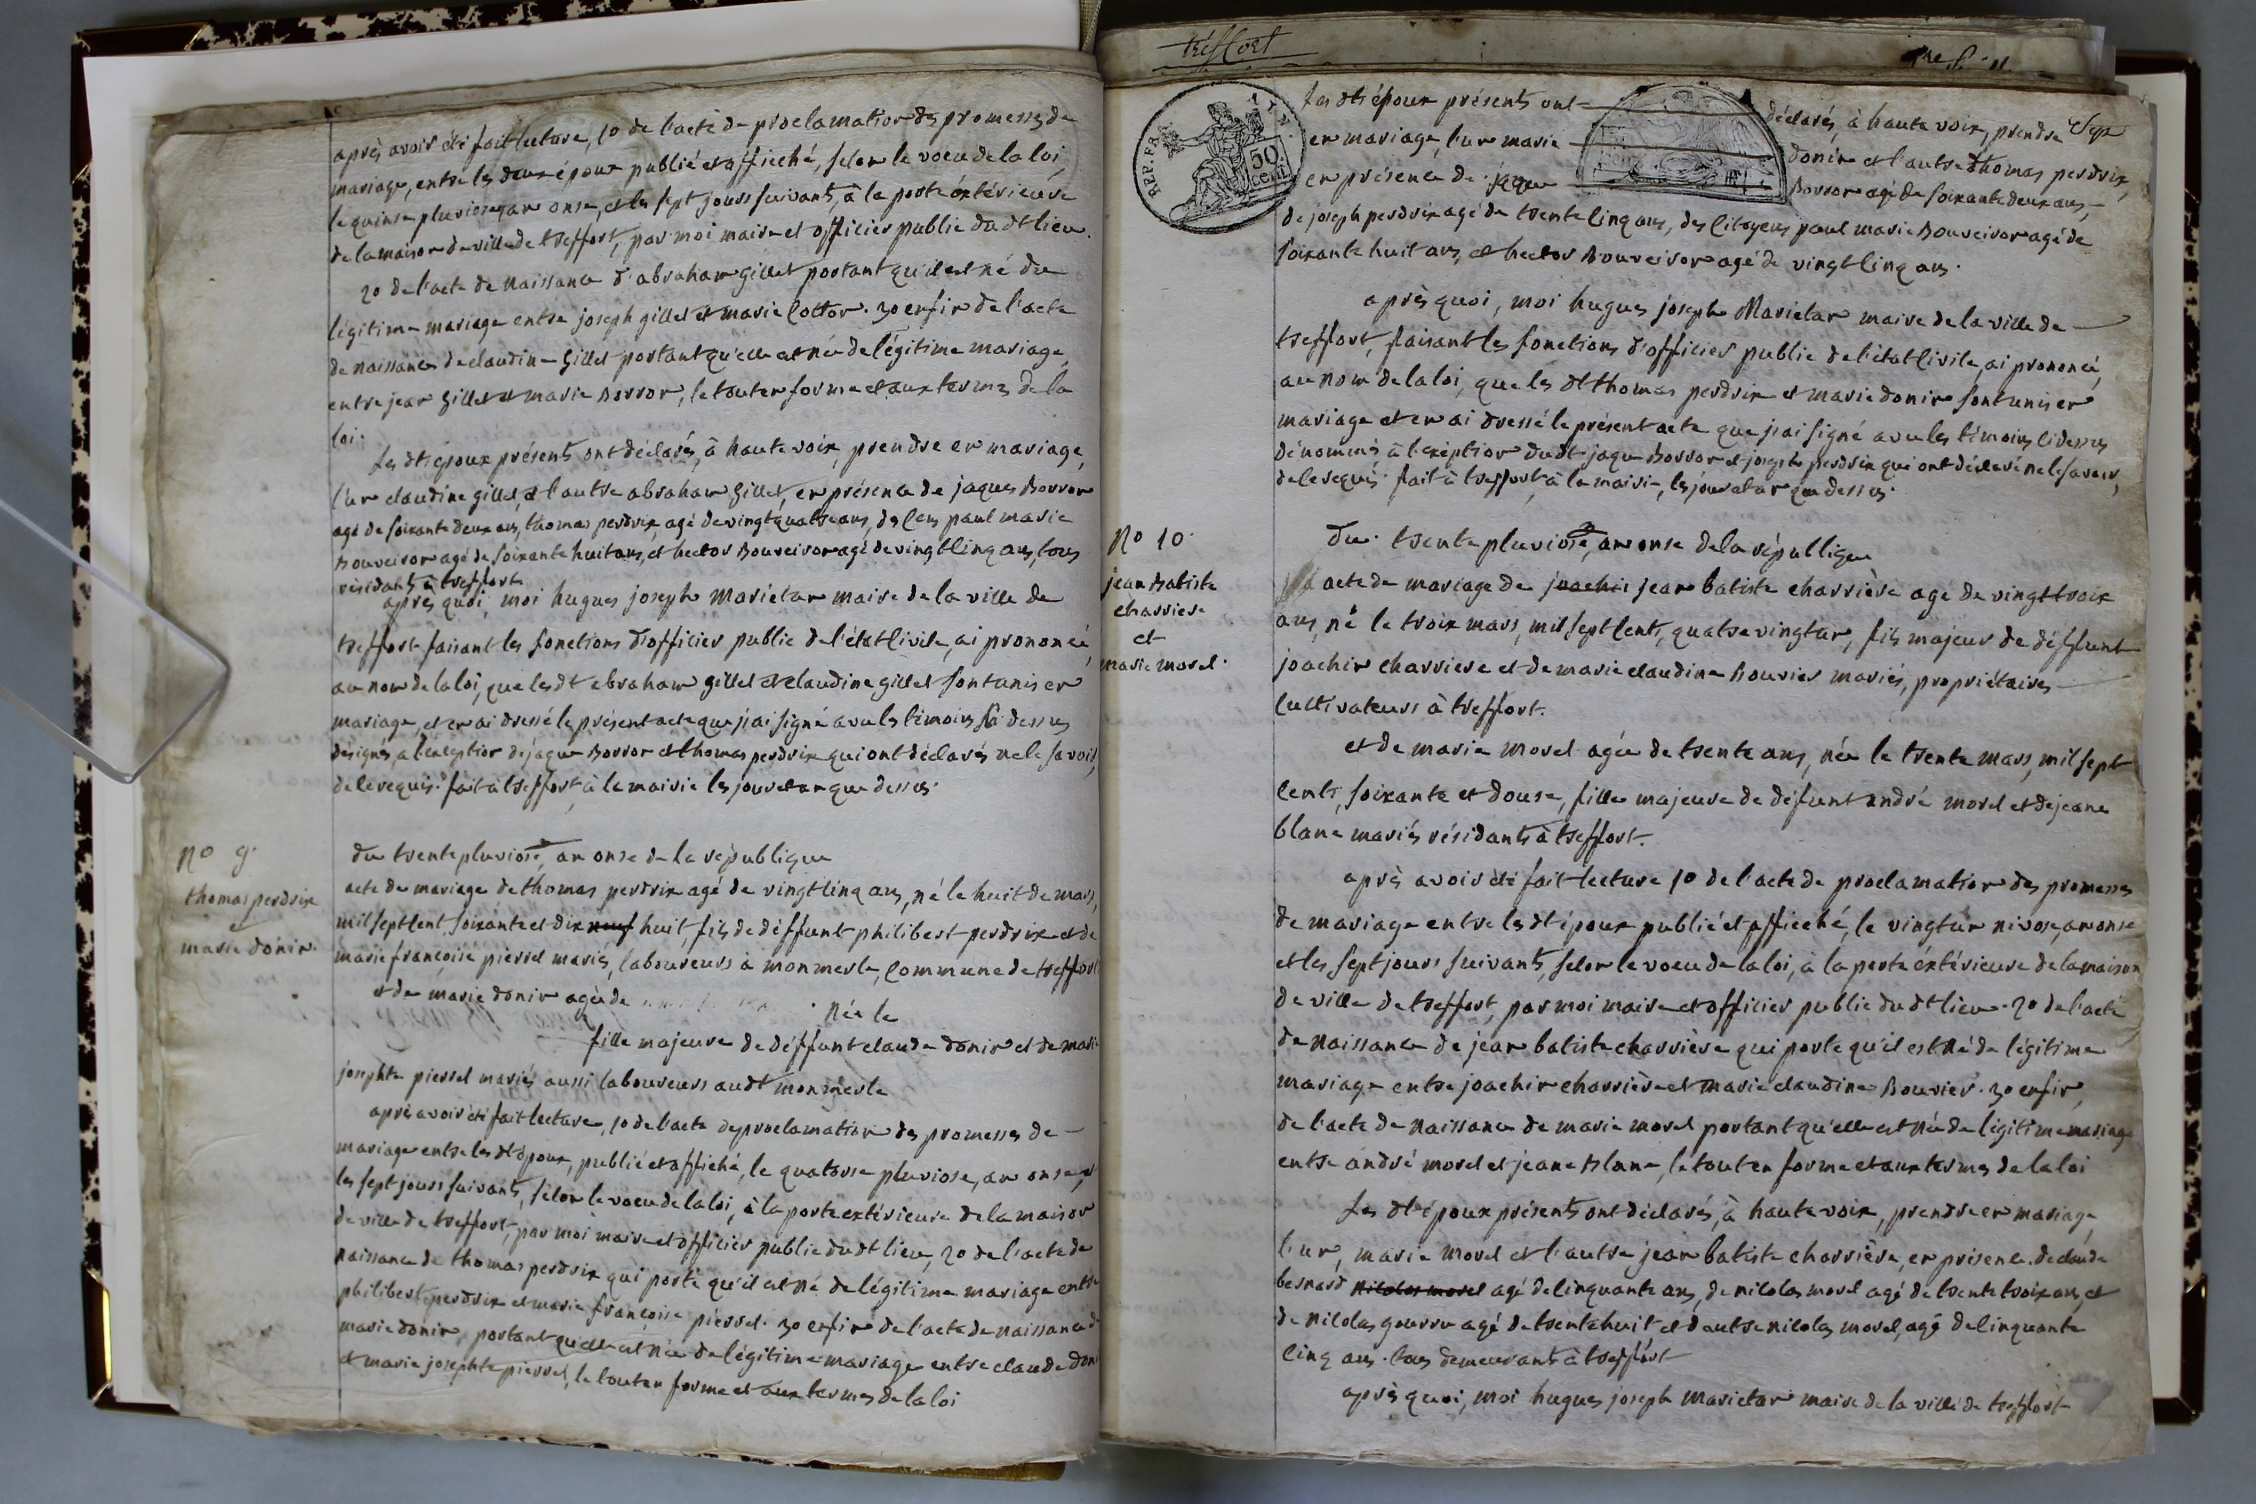 après avoir été fait lecture, 1o de l'acte de proclamation des promesses de
mariage, entre les deux époux publié et affiché, selon le voeu de la loi,
le quinse pluviose, an onse, et les sept jours suivants, à la porte éxtérieure
de la maison de ville de treffort, par moi maire et officier public du dt lieu.
2o de l'acte de naissance d'abraham gillet portant qu'il est né du
légitime mariage entre joseph gillet et marie Cotton. 3o enfin de l'acte
de naissance de claudine gillet portant qu'elle est née de légitime mariage,
entre jean gillet et marie Borron, le tout en forme et aux termes de la
loi.
Les dts époux présents ont déclarés, à haute voix, prendre en mariage,
l'un claudine gillet, et l'autre abraham gillet, en présence de jaques Borron
agé de soixante deux ans, thomas perdrix agé de vingt quatre ans, des Cens paul marie
Bouveiron agé de soixante huit ans, et hector Bouveiron agé de vingt cinq ans, tous
résidants à treffort
après quoi, moi hugues joseph Marietan maire de la ville de
treffort faisant les fonctions d'officier public de l'état civile, ai prononcé,
au nom de la loi, que les dt abraham gillet et claudine gillet sont unis en
mariage, et en ai dressé le présent acte que j'ai signé avec les témoins ci dessus
désignés a l'éxception de jaque Borron et thomas perdrix qui ont déclarés ne le savoir,
de le requis. fait à treffort, à la mairie les jour et an que dessus.
No 9.
thomas perdrix
et
marie donin.
du trente pluviose, an onse de la république
acte de mariage de thomas perdrix agé de vingt cinq ans, né le huit de mars,
mil sept cent soixante et dix neuf huit, fils de déffunt philibert perdrix et de
marie françoise pierrel mariés, laboureurs à monmerle, Commune de treffort
et de marie donin agée de née le
fille majeure de déffunt claude donin et de marie
josephte pierrel mariés aussi laboureurs audt monmerle
après avoir été fait lecture, 1o de l'acte de proclamation des promesses de
mariage entre les dt époux, publié et affiché, le quatorse pluviose, an onse, et
les sept jours suivants, selon le voeu de la loi, à la porte extérieure de la maison
de ville de treffort, par moi maire et officier public du dt lieu, 2o de l'acte de
naissance de thomas perdrix qui porte qu'il est né de légitime mariage entre
philibert perdrix et marie françoise pierrel. 3o enfin de l'acte de naissance de
marie donin, portant qu'elle est née de légitime mariage entre claude donin
et marie josephte pierrel, le tout en forme et aux termes de la loi
treffort
REP. FRA.
50 cent.
Les dts époux présents ont déclarés, à haute voix, prendre
en mariage, l'un marie donin et l'autre thomas perdrix,
en présence de jaque Borron agé de soixante deux ans,
de joseph perdrix agé de trente cinq ans, des Citoyens paul marie Bouveiron agé de
soixante huit ans, et hector Bouveiron agé de vingt cinq ans.
après quoi, moi hugues joseph Marietan maire de la ville de
treffort, faisant les fonctions d'officier public de l'état civile, ai prononcé,
au nom de la loi, que les dt thomas perdrix et marie donin sont unis en
mariage et en ai dressé le présent acte que j'ai signé avec les témoins ci dessus
dénommés à l'exéption dudt jaque Borron et joseph perdrix qui ont déclaré ne le savoir,
de le requis. fait à treffort, à la mairie, les jour et an que dessus.
No 10.
jean Batiste
charriere
et
marie morel.
du trente pluviose, an onse de la républlique
acte de mariage de joachin jean batiste charrière agé de vingt troix
ans, né le troix mars, mil sept cents, quatre vingt un, fils majeur de déffunt
joachin charriere et de marie claudine Bouvier mariés, propriétaires
cultivateurs à treffort.
et de marie morel agée de trente ans, née le trente mars, mil sept
cents, soixante et douse, fille majeure de défunt andré morel et de jeane
blanc mariés résidants à treffort.
après avoir été fait lecture 1o de l'acte de proclamation des promesses
de mariage entre les dt époux publié et affieché, le vingt un nivose, an onse
et les sept jours suivants, selon le voeu de la loi, à la porte éxtérieure de la maison
de ville de treffort, par moi maire et officier public du dt lieu. 2o de l'acte
de naissance de jean batiste charrière qui porte qu'il est né de légitime
mariage entre joachin charrière et marie claudine Bouvier. 3o enfin,
de l'acte de naissance de marie morel portant qu'elle est née de légitime mariage
entre andré morel et jeane Blanc, le tout en forme et aux termes de la loi
Les dts époux présents ont déclarés, à haute voix, prendre en mariage,
l'un, marie morel et l'autre jean batiste charrière, en présence de claude
bernard nicolas morel agé de cinquante ans, de nicolas morel agé de trente troix ans, et
de nicolas gourru agé de trente huit, et d'autre nicolas morel, agé de cinquante
cinq ans. tous demeurants à treffort
après quoi, moi hugues joseph Marietan maire de la ville de treffort